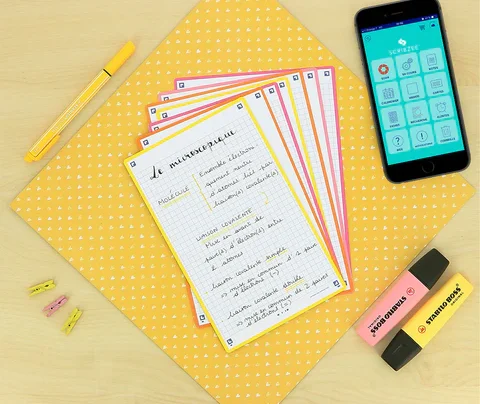 Le microscopique
MOLÉCULE
Ensemble électroni-
quement neutre
d'atomes liés par
liaison(s) covalente(s)
LIAISON COVALENTE
Mise en commun de
paire(s) d'électron(s) entre
2 atomes
liaison covalente simple
⇒ mise en commun d'1 paire
d'électrons (-)
liaison covalente double
⇒ mise en commun de 2 paires
d'électrons (=)
SCRIBZEE
STABILO BOSS
ORIGINAL
STABILO BOSS